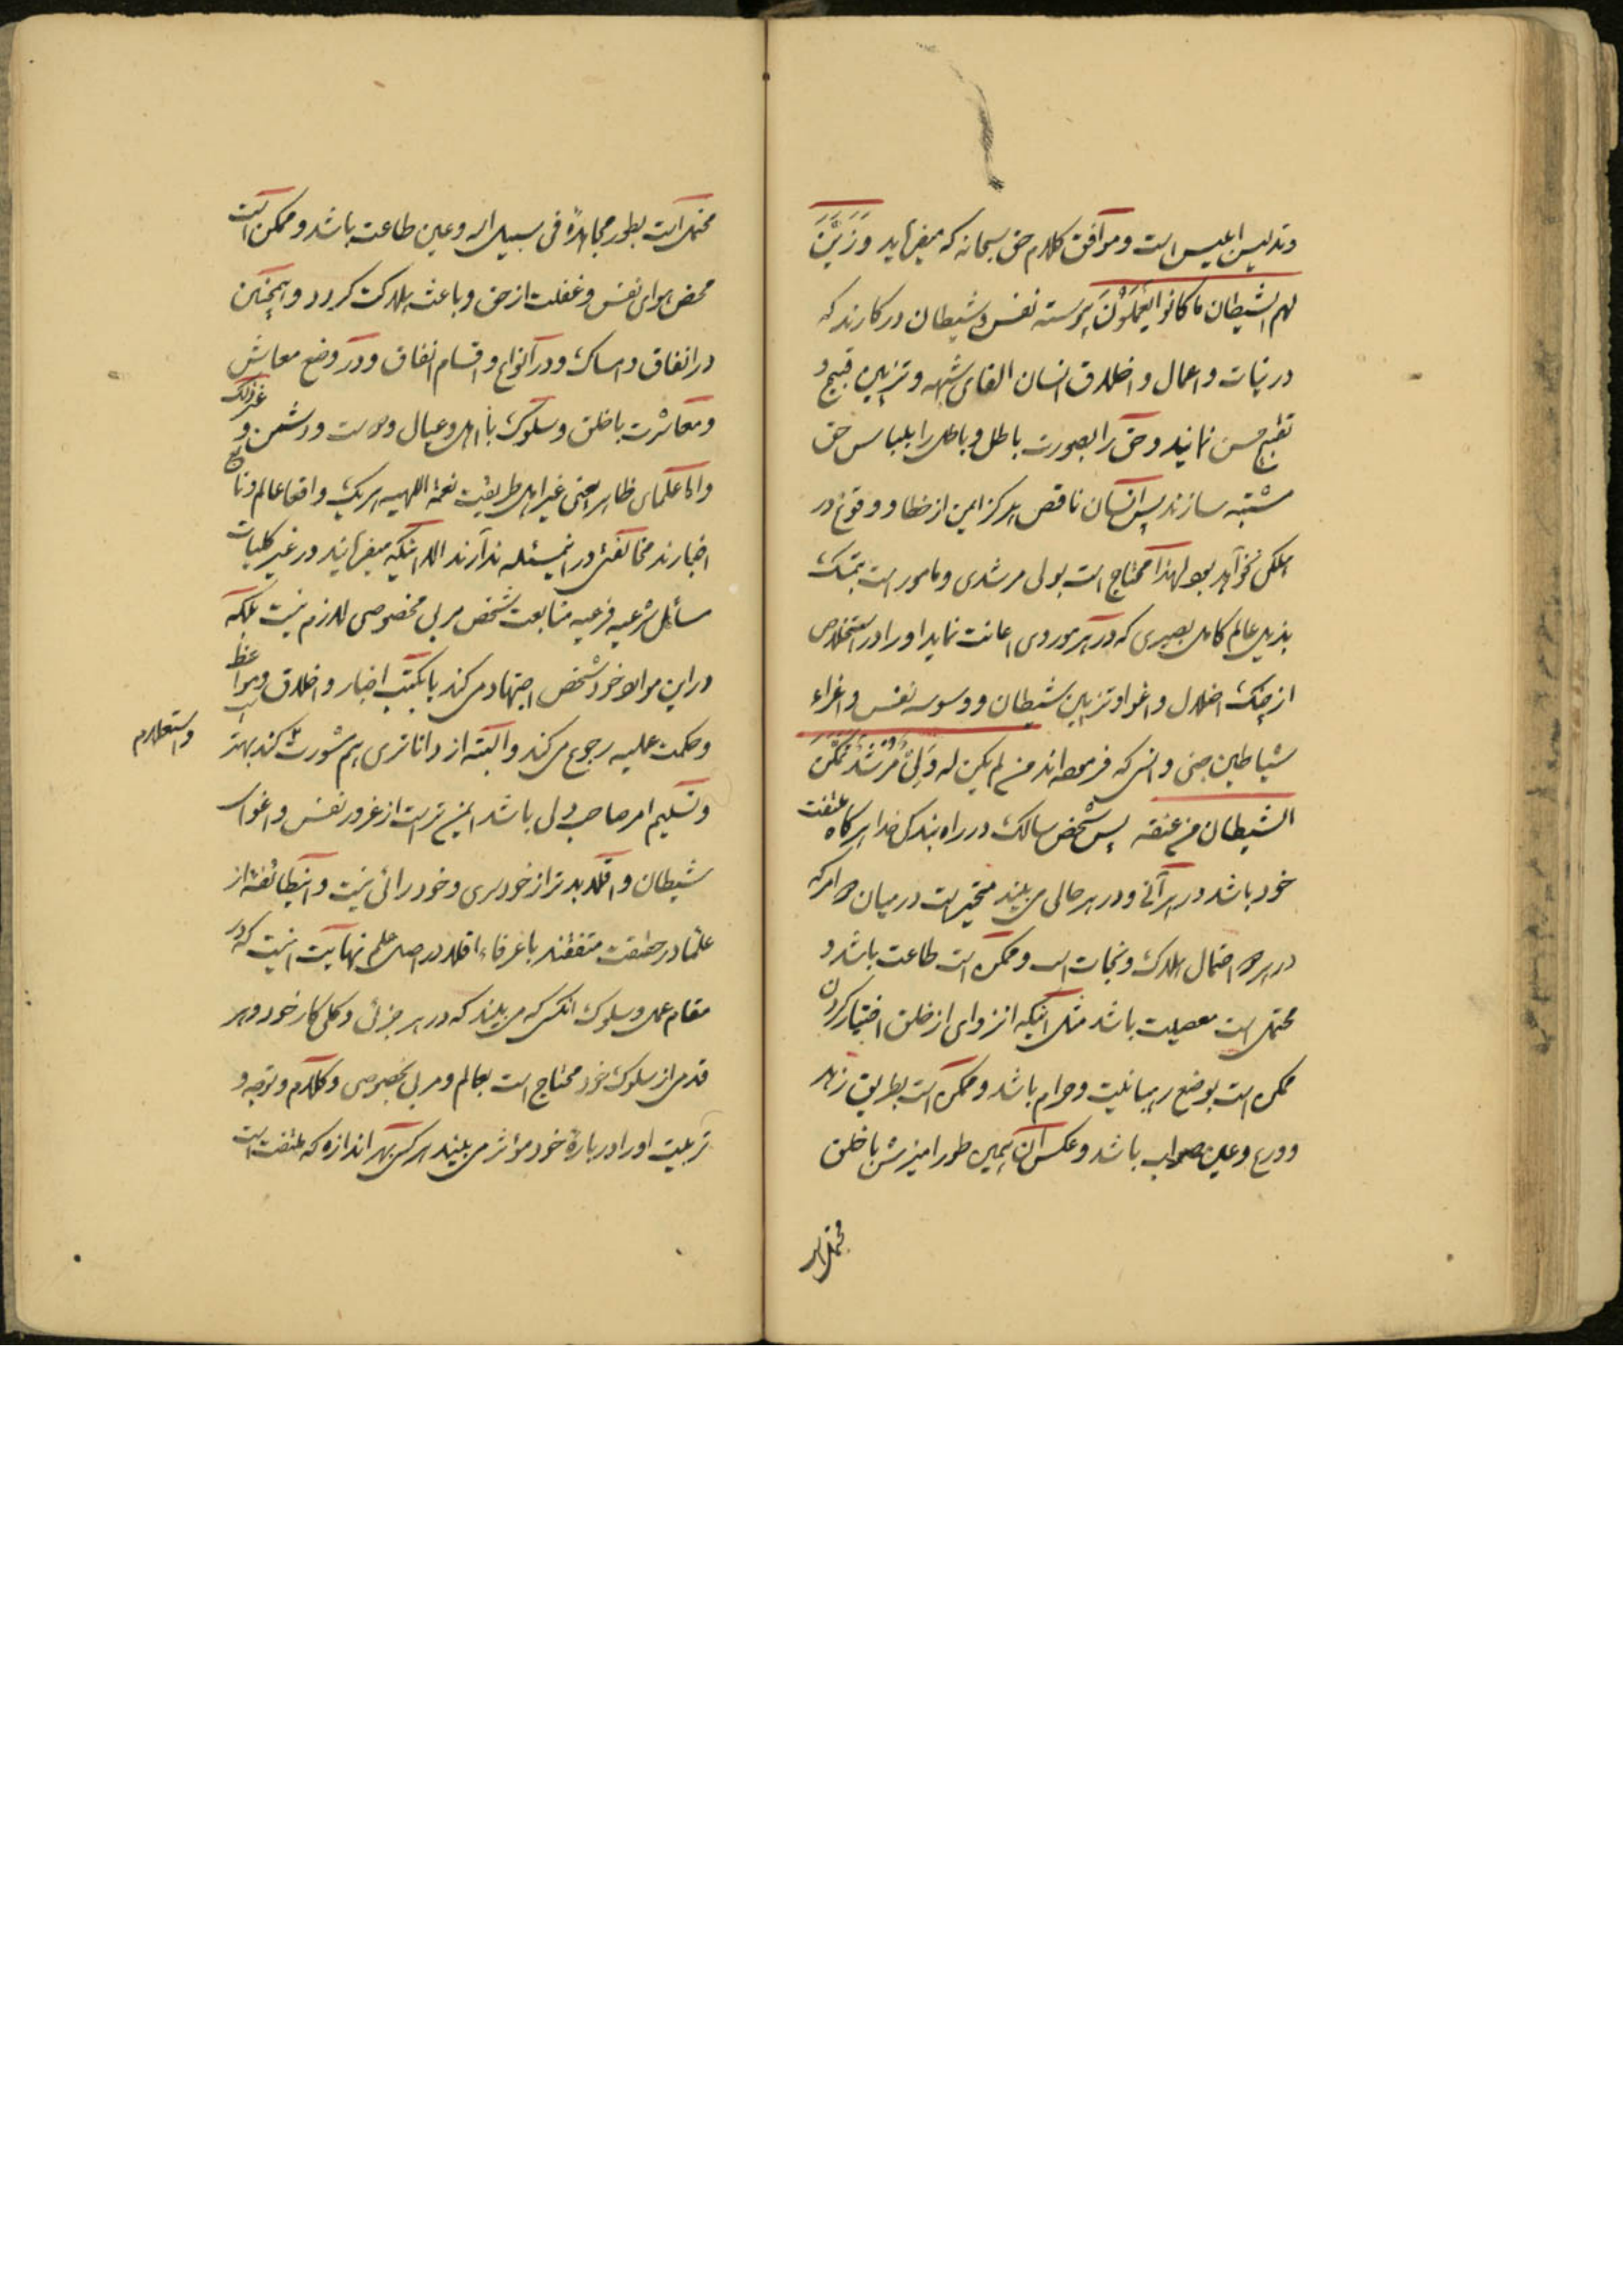 و تدلیس ابلیس است و موافق کلام حق سبحانه که میفرماید وَ زَیَّنَ
لهم الشیطان ما کانوا یَعْمَلُوْنَ پیوسته نفس و شیطان در کارند که
در نیات و اعمال و اخلاق انسان القای شبهه و تزیین قبیح و
تقبیح حسن نمایند و حق را بصورت باطل و باطل را بلباس حق
مشتبه سازند پس انسان ناقص هرگز ایمن از خطا و وقوع در
مهلکه نخواهد بود لهذا محتاج است بولی مرشدی و مامور است بتمسک
بذیل عالم کامل بصیری که در هر موردی اعانت نماید او را در استخلاص
از چنگ اضلال و اغوا و تزیین شیطان و وسوسه نفس و اغراء
شیاطین جنی و انسی که فرموده‌اند من لم یکن له وَلِیٌّ مُرْشِدٌ تمکن
الشیطان من عنقه پس شخص سالک در راه بندگی خدا هرگاه ملتفت
خود باشد در هر آنی و در هر حالی می‌بیند متحیر است در میان دو امر که
در هر دو احتمال هلاک و نجات است و ممکن است طاعت باشد و
محتمل است معصیت باشد مثل اینکه انزوای از خلق اختیار کردن
ممکن است بوضع رهبانیت و حرام باشد و ممکن است بطریق زهد
و ورع و عین صواب باشد و عکس آن همین طور امیزش با خلق
محتمل است
محتمل است بطور مجاهدهٔ فی سبیل الله و عین طاعت باشد و ممکن است
محض هوای نفس و غفلت از حق و باعث هلاکت گردد و همچنین
در انفاق و امساک و در انواع و اقسام انفاق و در وضع معاش
و معاشرت با خلق و سلوک با اهل و عیال و دوست و دشمن و غیر ذلک
و اما علمای ظاهر یعنی غیر اهل طریقت نعمة اللهیه هر یک واقعا عالم و تابع
اخبارند مخالفتی در اینمسئله ندارند الا اینکه میفرمایند در غیر کلیات
مسائل شرعیه فرعیه متابعت شخص مربی مخصوصی لازم نیست بلکه
در این موارد خود شخص اجتهاد می‌کند یا بکتب اخبار و اخلاق و مواعظ
و حکمت عملیه رجوع می‌کند و البته از داناتری هم مشورت کند بهتر
و استعلام
و تسلیم امر صاحب دلی باشد ایمن تر است از غرور نفس و اغوای
شیطان و اقلا بدتر از خودسری و خودرائی نیست و اینطائفه از
علما در حقیقت متفقند با عرفاء اقلا در اصل علم نهایت اینست که در
مقام عمل و سلوک انکس که می‌بیند که در هر جزئی و کلی کار خود و هر
قدمی از سلوک خود محتاج است بعالم و مربی بخصوصی و کلام و توجه و
تربیت او را در بارهٔ خود مؤثر می‌بیند هر کس بهر اندازه که ملتفت است